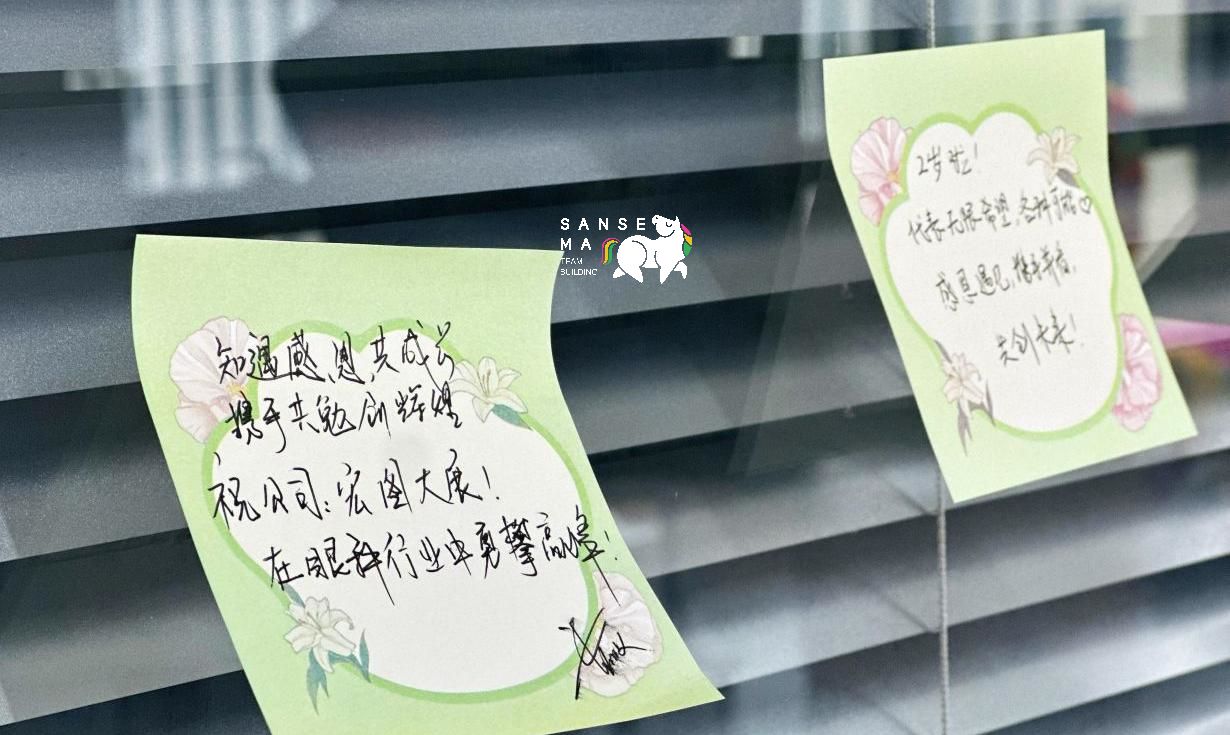 知遇感恩共成长
携手共勉创辉煌
祝公司:宏图大展!
在眼科行业中勇攀高峰!
SANSE
MA
TEAM
BUILDING
2岁啦!
代表无限希望,各种可能♡
感恩遇见,携手并肩,
共创未来!